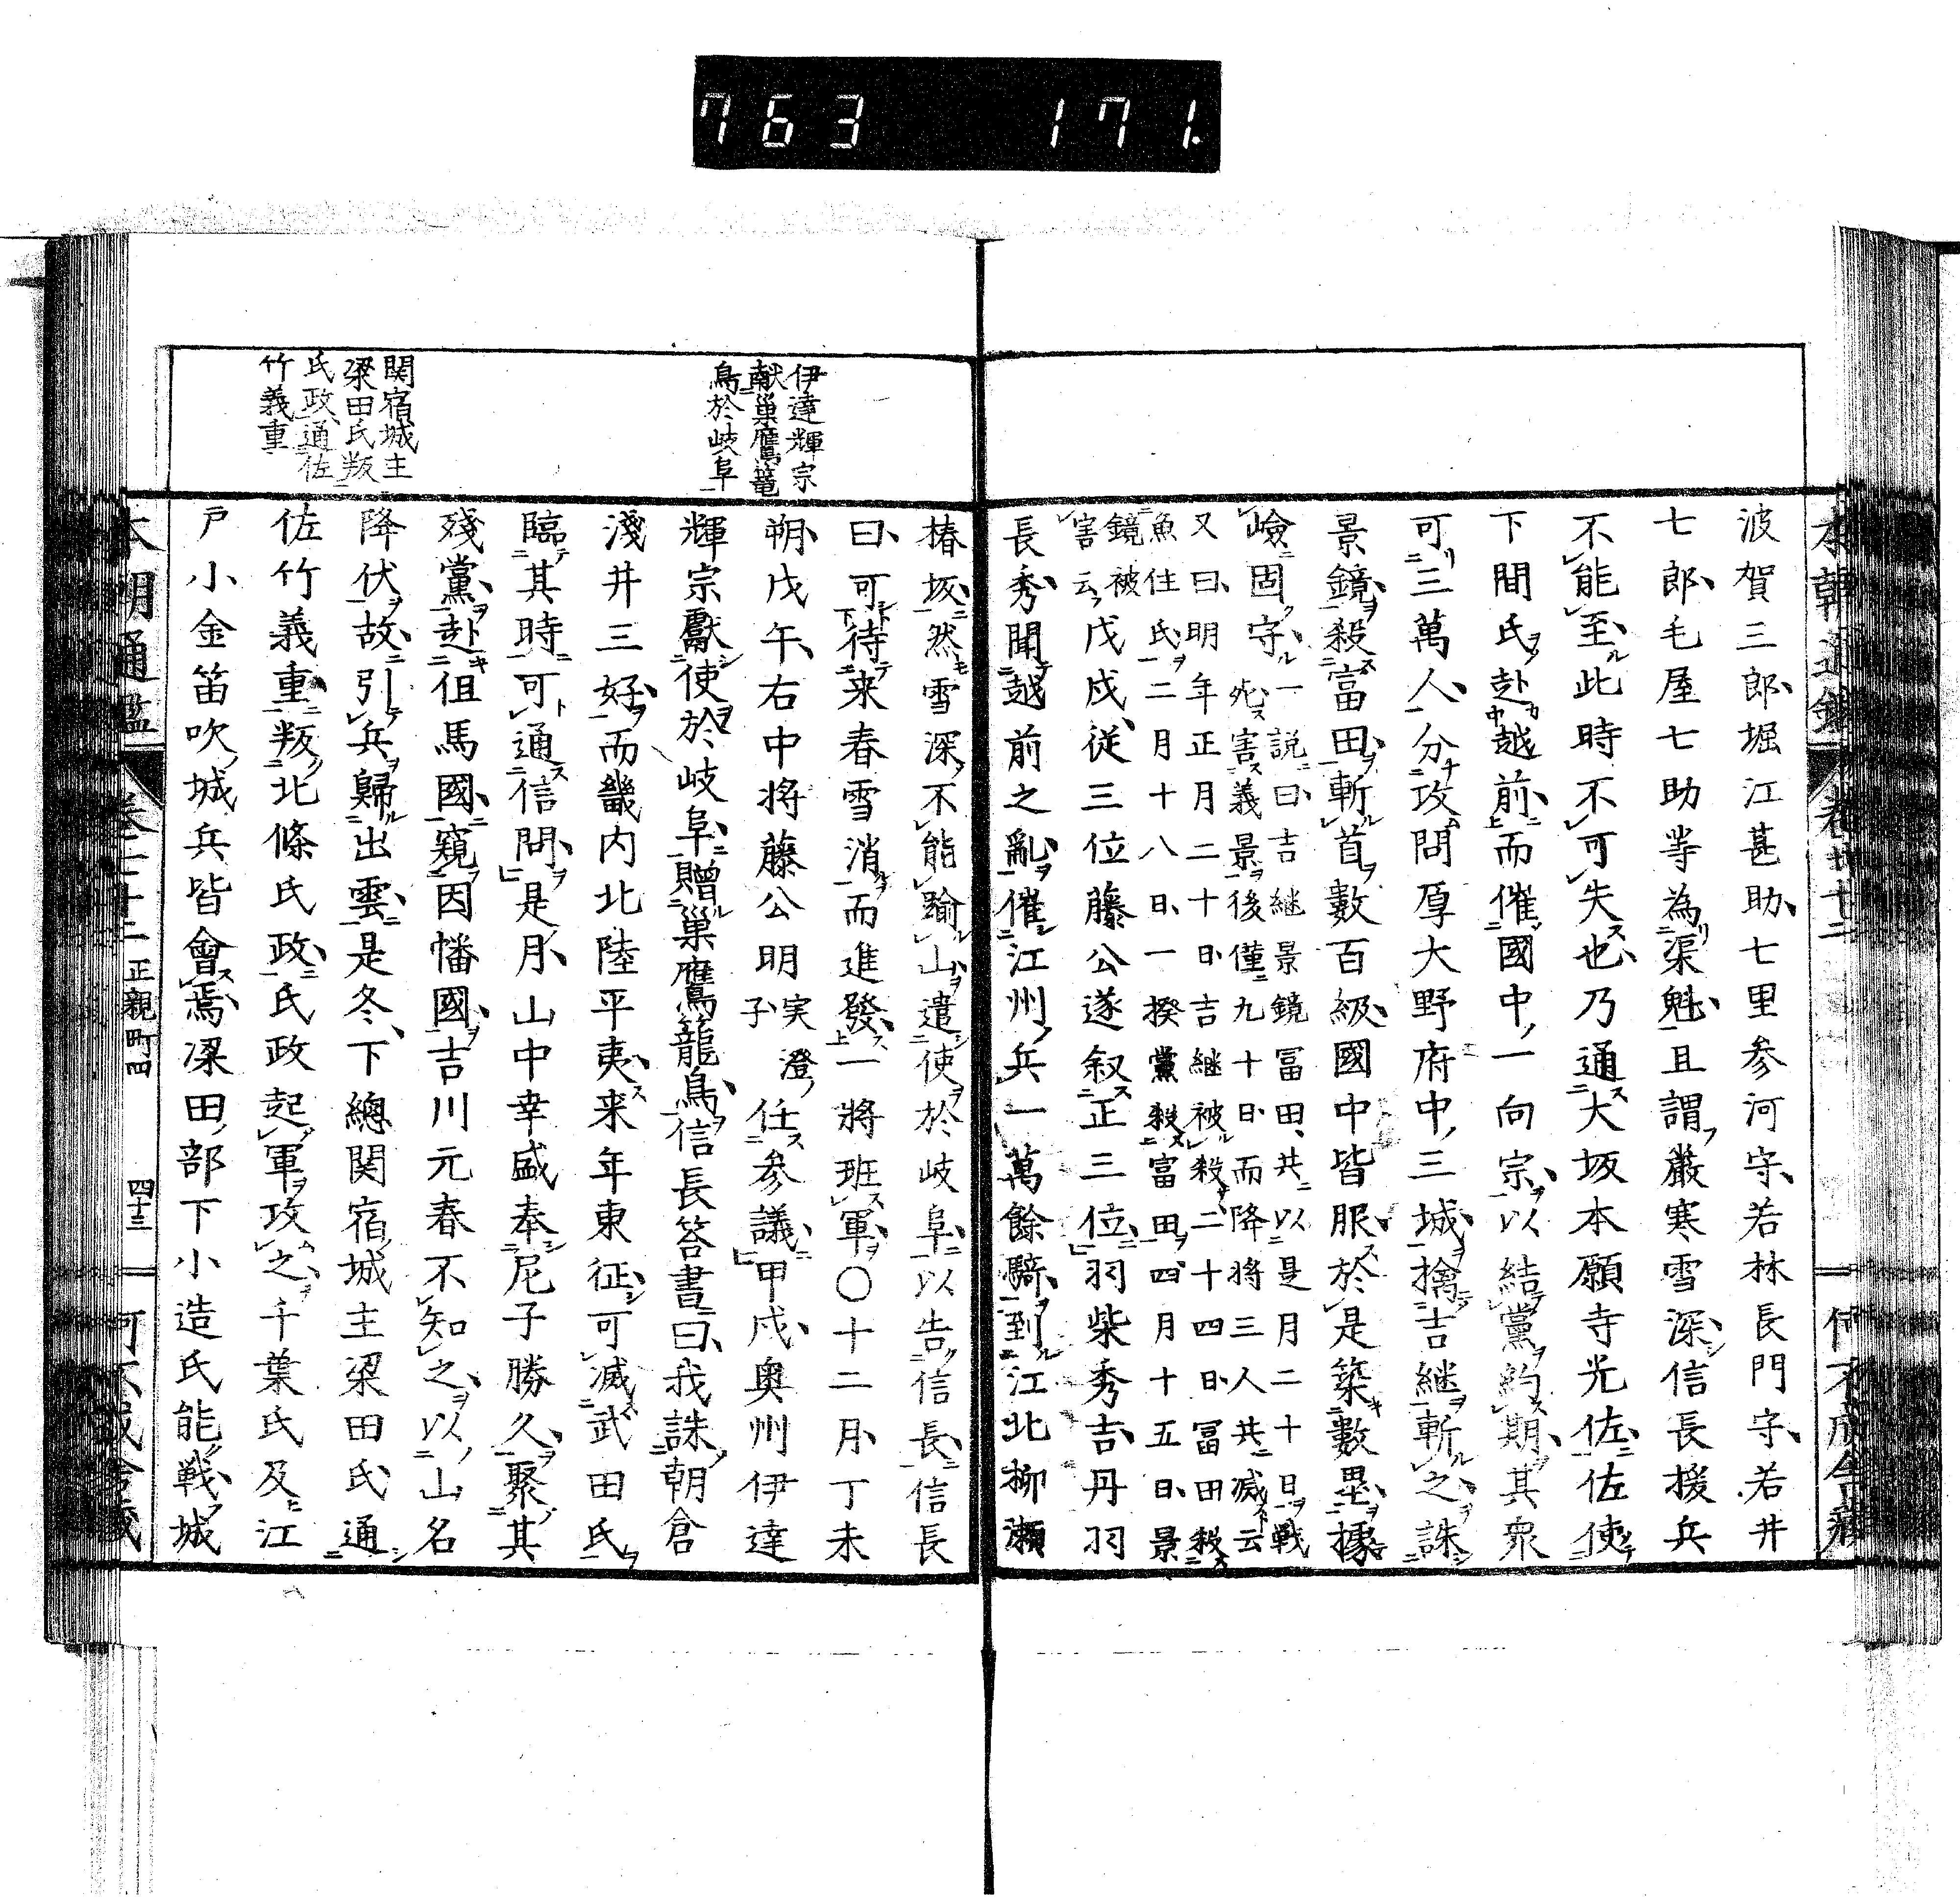 763 171.
波賀三郎堀江甚助七里参河守若林長門守若井
七郎毛屋七助等為渠魁且謂嚴寒雪深信長援兵
不能至此時不可失也乃通大坂本願寺光佐佐使
下間氏赴越前而催國中一向宗以結黨約期其衆
可三萬人分攻問厚大野府中三城擒吉継斬之誅
景鏡殺富田斬首數百級國中皆服於是築數壘據
嶮固守一說曰吉継景鏡冨田共以是月二十日戰
死害義景後僅九十日而降將三人共滅云
又曰明年正月二十日吉継被殺二十四日冨田殺
魚住氏二月十八日一揆黨殺富田四月十五日景
鏡被
害云戊戌従三位藤公遂叙正三位羽柴秀吉丹羽
長秀聞越前之亂催江州兵一萬餘騎到江北柳瀬
椿坂然雪深不能踰山遣使於岐阜以告信長信長
曰可待来春雪消而進發一將班軍〇十二月丁未
朔戊午右中将藤公明実澄子任参議甲戌奥州伊達
輝宗獻使於岐阜贈巢鷹籠鳥信長答書曰我誅朝倉
淺井三好而畿内北陸平夷来年東征可滅武田氏
臨其時可通信問是月山中幸盛奉尼子勝久聚其
殘黨赴伹馬國窺因幡國吉川元春不知之以山名
降伏故引兵歸出雲是冬下總関宿城主梁田氏通
佐竹義重叛北條氏政氏政起軍攻之千葉氏及江
戸小金笛吹城兵皆會焉梁田部下小造氏能戦城
伊達輝宗
献巢鷹篭
鳥於岐阜
関宿城主
梁田氏叛
氏政通佐
竹義重
本朝通鑑 卷二十二 正親町四 四十三